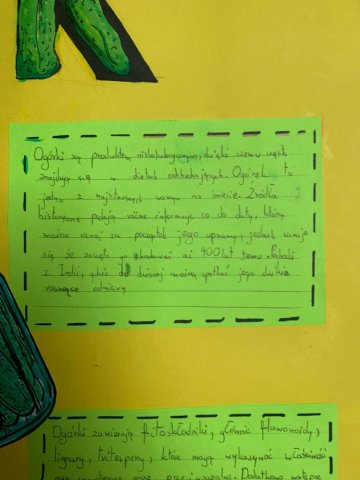 Ogórki są produktem niskokalorycznym, dzięki czemu często
znajdują się w dietach odchudzających. Ogórek to
jedno z najstarszych warzyw na świecie. Źródła
historyczne podają różne informacje co do daty, którą
można uznać za początek jego uprawy, jednak uznaje
się że zaczęto go hodować ok 4000 lat temu. Pochodzi
z Indii, gdzie do dzisiaj można spotkać jego dziko
rosnące odmiany.
Ogórki zawierają fitoskładniki, głównie flawonoidy,
lignany, triterpeny, które mogą wykazywać właściwości
oraz Dodatkowo wstępne